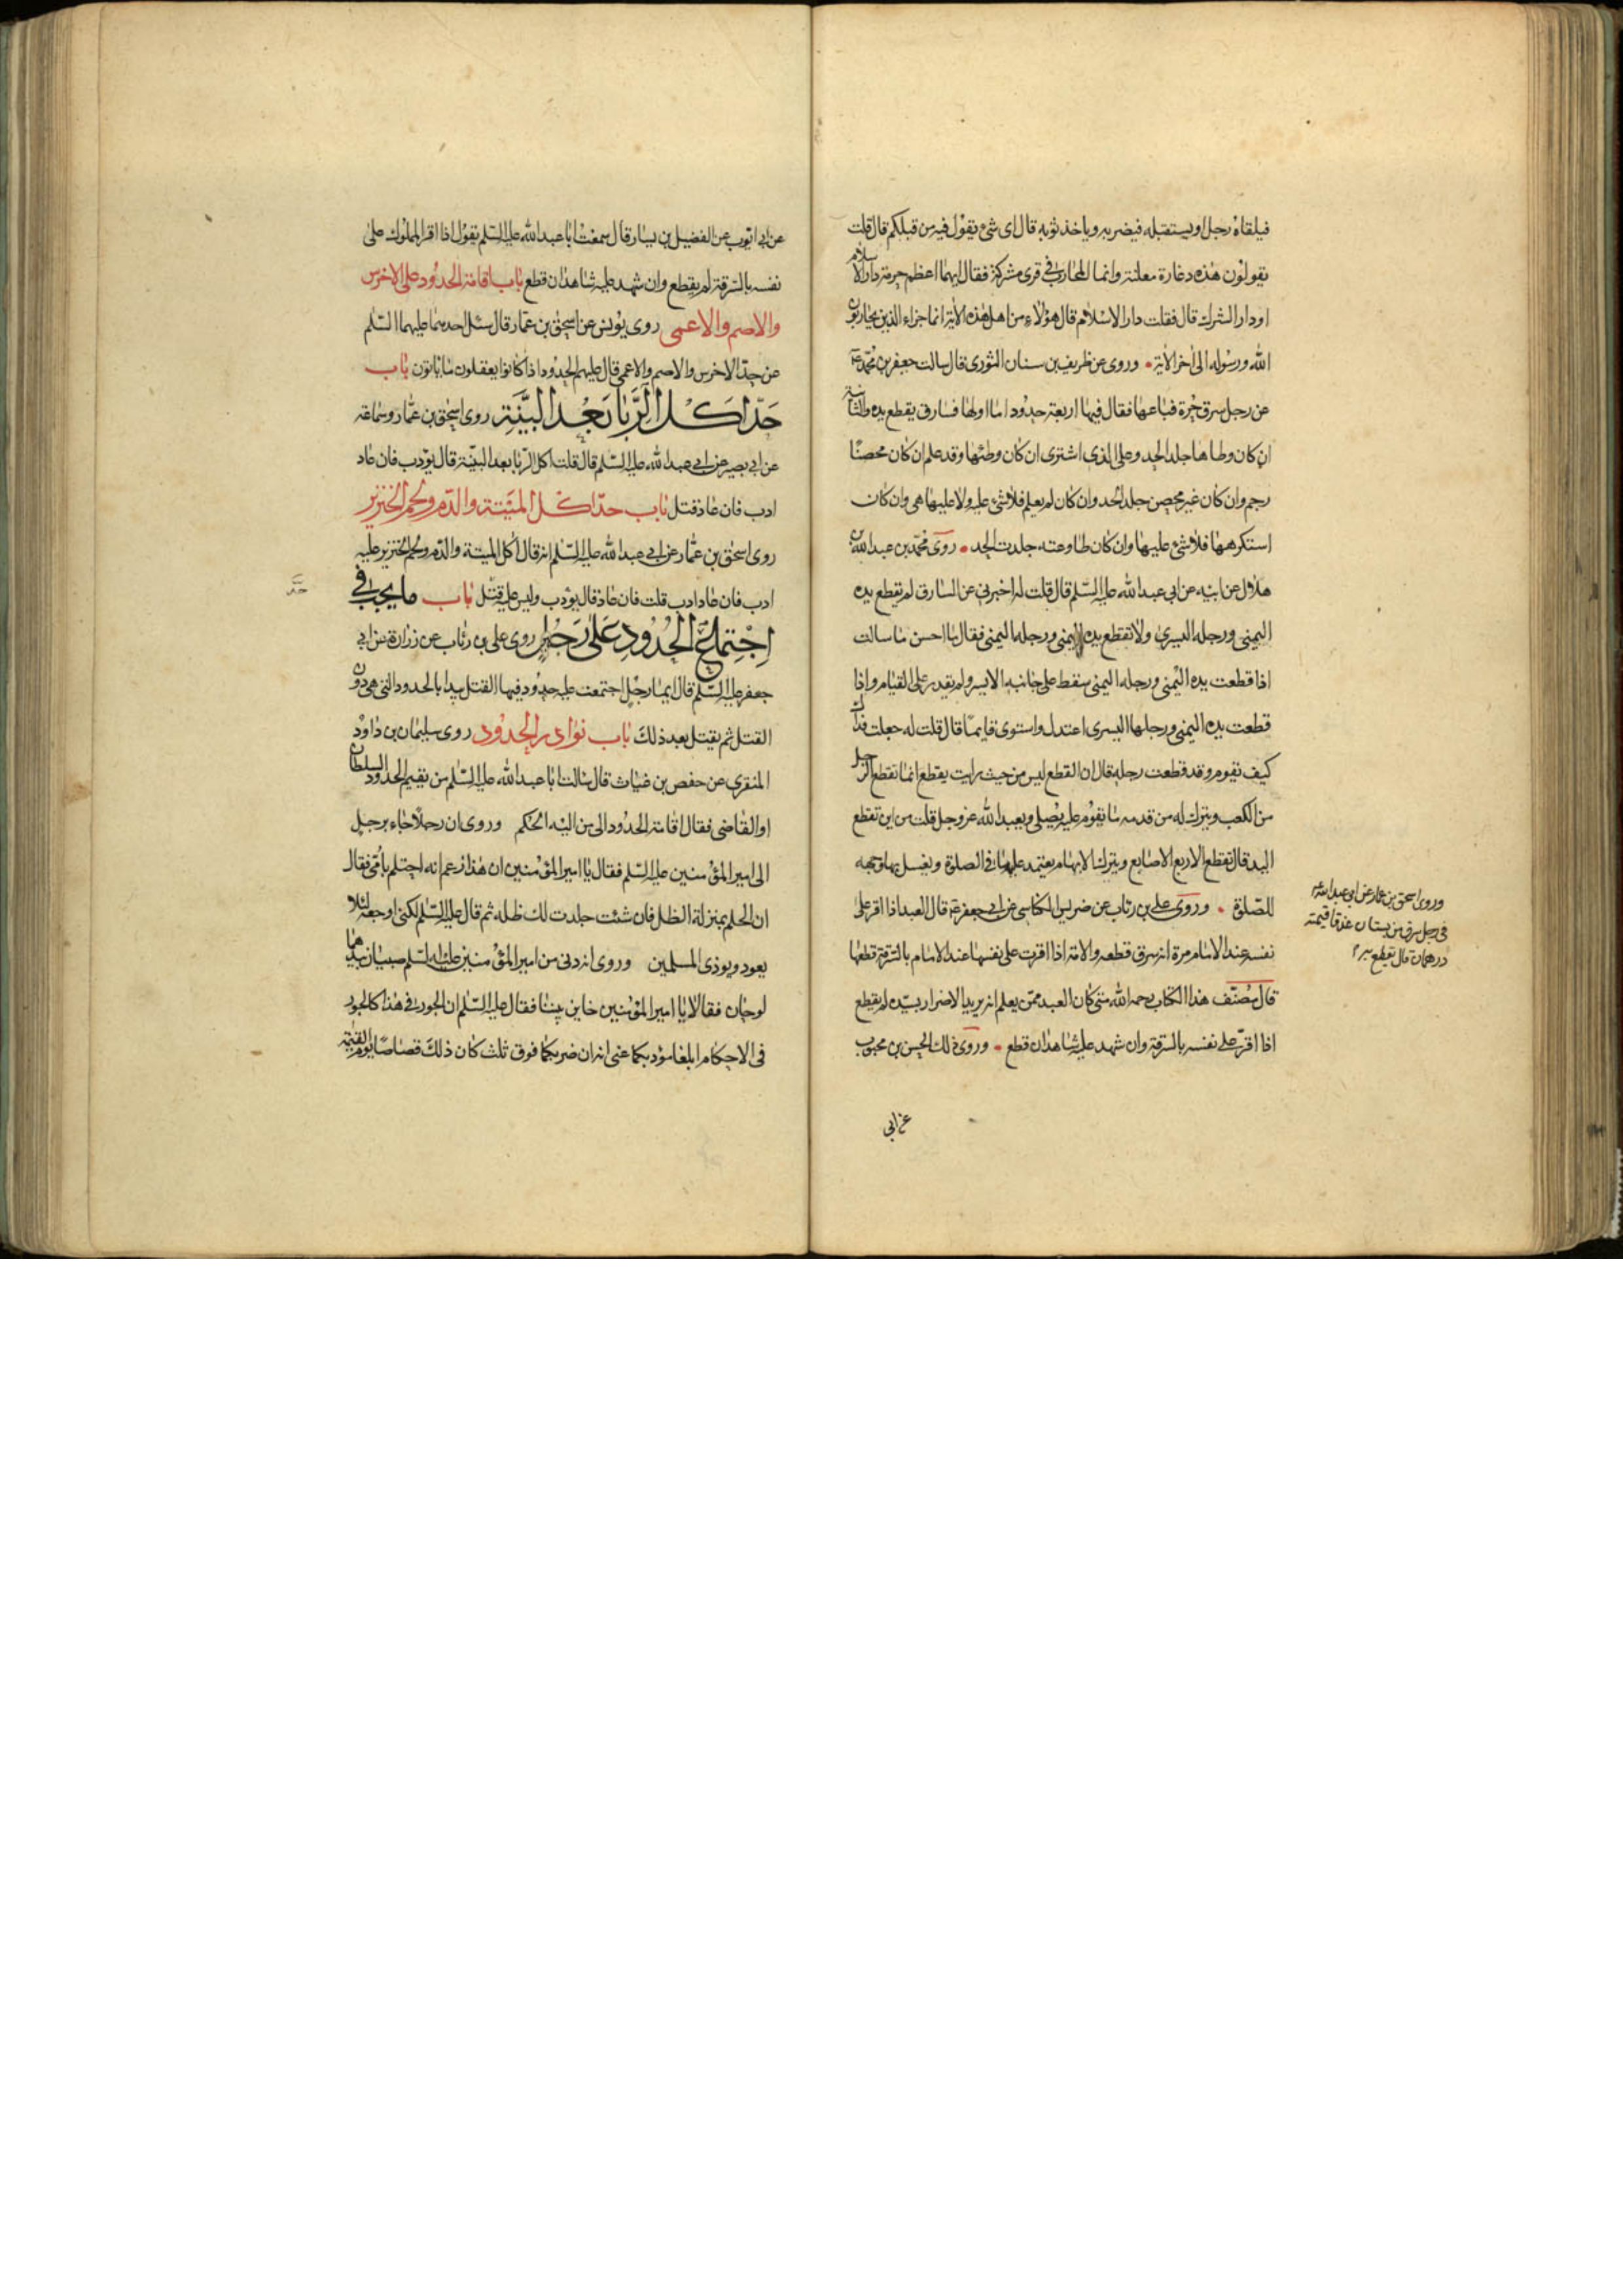 فيلقاه رجل او يستقبله فيضربه وياخذ ثوبه قال اى شئ يقول فيه من قبلكم قال قلت
يقولون هذه دغارة معلنة وانما المحارب فى قرى مشركة فقال ايهما اعظم حرمة دار الاسلام
او دار الشرك قال فقلت دار الاسلام قال هؤلاء من اهل هذه الاية انما جزاء الذين يحاربون
الله ورسوله الى اخر الاية وروى عن ظريف بن سنان الثورى قال سالت جعفر بن محمد ع
عن رجل سرق حرة فباعها فقال فيها اربعة حدود اما اولها فسارق يقطع يده والثانية
ان كان وطاها جلد الحد وعلى الذى اشترى ان كان وطئها وقد علم ان كان محصنا
رجم وان كان غير محصن جلد الحد وان كان لم يعلم فلا شئ عليه ولا عليها هى وان كان
استكرهها فلا شئ عليها وان كان طاوعته جلدت الحد روى محمد بن عبد الله بن
هلال عن ابيه عن ابى عبد الله عليه السلم قال قلت له اخبرنى عن السارق لم يقطع يده
اليمنى ورجله اليسرى ولا تقطع يده اليمنى ورجله اليمنى فقال ما احسن ما سالت
اذا قطعت يده اليمنى ورجله اليمنى سقط على جانبه الايسر ولم يقدر على القيام واذا
قطعت يده اليمنى ورجلها اليسرى اعتدل واستوى قايما قال قلت له جعلت فداك
كيف يقوم وقد قطعت رجله قال ان القطع ليس من حيث رايت يقطع انما تقطع الرجل
من الكعب ويترك له من قدمه ما يقوم عليه يصلى ويعبد الله عز وجل قلت من اين تقطع
اليد قال تقطع الاربع الاصابع ويترك الابهام يعتمد عليها فى الصلوة ويغسل بها وجهه
للصلوة وروى على بن رئاب عن ضريس الكناسى عن ابى جعفر ع قال العبد اذا اقر على
نفسه عند الامام مرة انه سرق قطعه والامة اذا اقرت على نفسها عند الامام بالسرقة قطعها
قال مصنف هذا الكتاب رحمه الله متى كان العبد ممن يعلم انه يريد الاضرار بسيده لم يقطع
اذا اقر على نفسه بالسرقة وان شهد عليه شاهدان قطع وروى ذلك الحسن بن محبوب
عن ابى
وروى اسحق بن عمار عن ابى عبد الله ع
فى رجل سرق من بستان عذقا قيمته
درهمان قال يقطع به
عن ابى ايوب عن الفضيل بن يسار قال سمعت ابا عبد الله عليه السلم يقول اذا اقر المملوك على
نفسه بالسرقة لم يقطع وان شهد عليه شاهدان قطع باب اقامة الحدود على الاخرس
والاصم والاعمى روى يونس عن اسحق بن عمار قال سئل احدهما عليهما السلم
عن حد الاخرس والاصم والاعمى قال عليهم الحدود اذا كانوا يعقلون ما ياتون باب
حد اكل الربا بعد البينة روى اسحق بن عمار وسماعة
عن ابى بصير عن ابى عبد الله عليه السلم قال قلت اكل الربا بعد البينة قال يؤدب فان عاد
ادب فان عاد قتل باب حد اكل الميتة والدم ولحم الخنزير
روى اسحق بن عمار عن ابى عبد الله عليه السلم انه قال اكل الميتة والدم ولحم الخنزير عليه
ادب فان عاد ادب قلت فان عاد قال يؤدب وليس عليه قتل باب ما يجب فى
حد
اجتماع الحدود على رجل روى على بن رئاب عن زرارة عن ابى
جعفر عليه السلم قال ايما رجل اجتمعت عليه حدود فيها القتل يبدا بالحدود التى هى دون
القتل ثم يقتل بعد ذلك باب نوادر الحدود روى سليمان بن داود
المنقرى عن حفص بن غياث قال سالت ابا عبد الله عليه السلم من يقيم الحدود السلطان
او القاضى فقال اقامة الحدود الى من اليه الحكم وروى ان رجلا جاء برجل
الى امير المؤمنين عليه السلم فقال يا امير المؤمنين ان هذا زعم انه احتلم بامى فقال
ان الحلم بمنزلة الظل فان شئت جلدت لك ظله ثم قال عليه السلم لكنى اوجعه لئلا
يعود ويوذى المسلمين وروى انه دنى من امير المؤمنين عليه السلم صبيان بيدهما
لوحان فقالا يا امير المؤمنين خاير بيننا فقال عليه السلم ان الجور فى هذا كالجور
فى الاحكام ابلغا مؤدبكما عنى انه ان ضربكما فوق ثلث كان ذلك قصاصا يوم القيمة